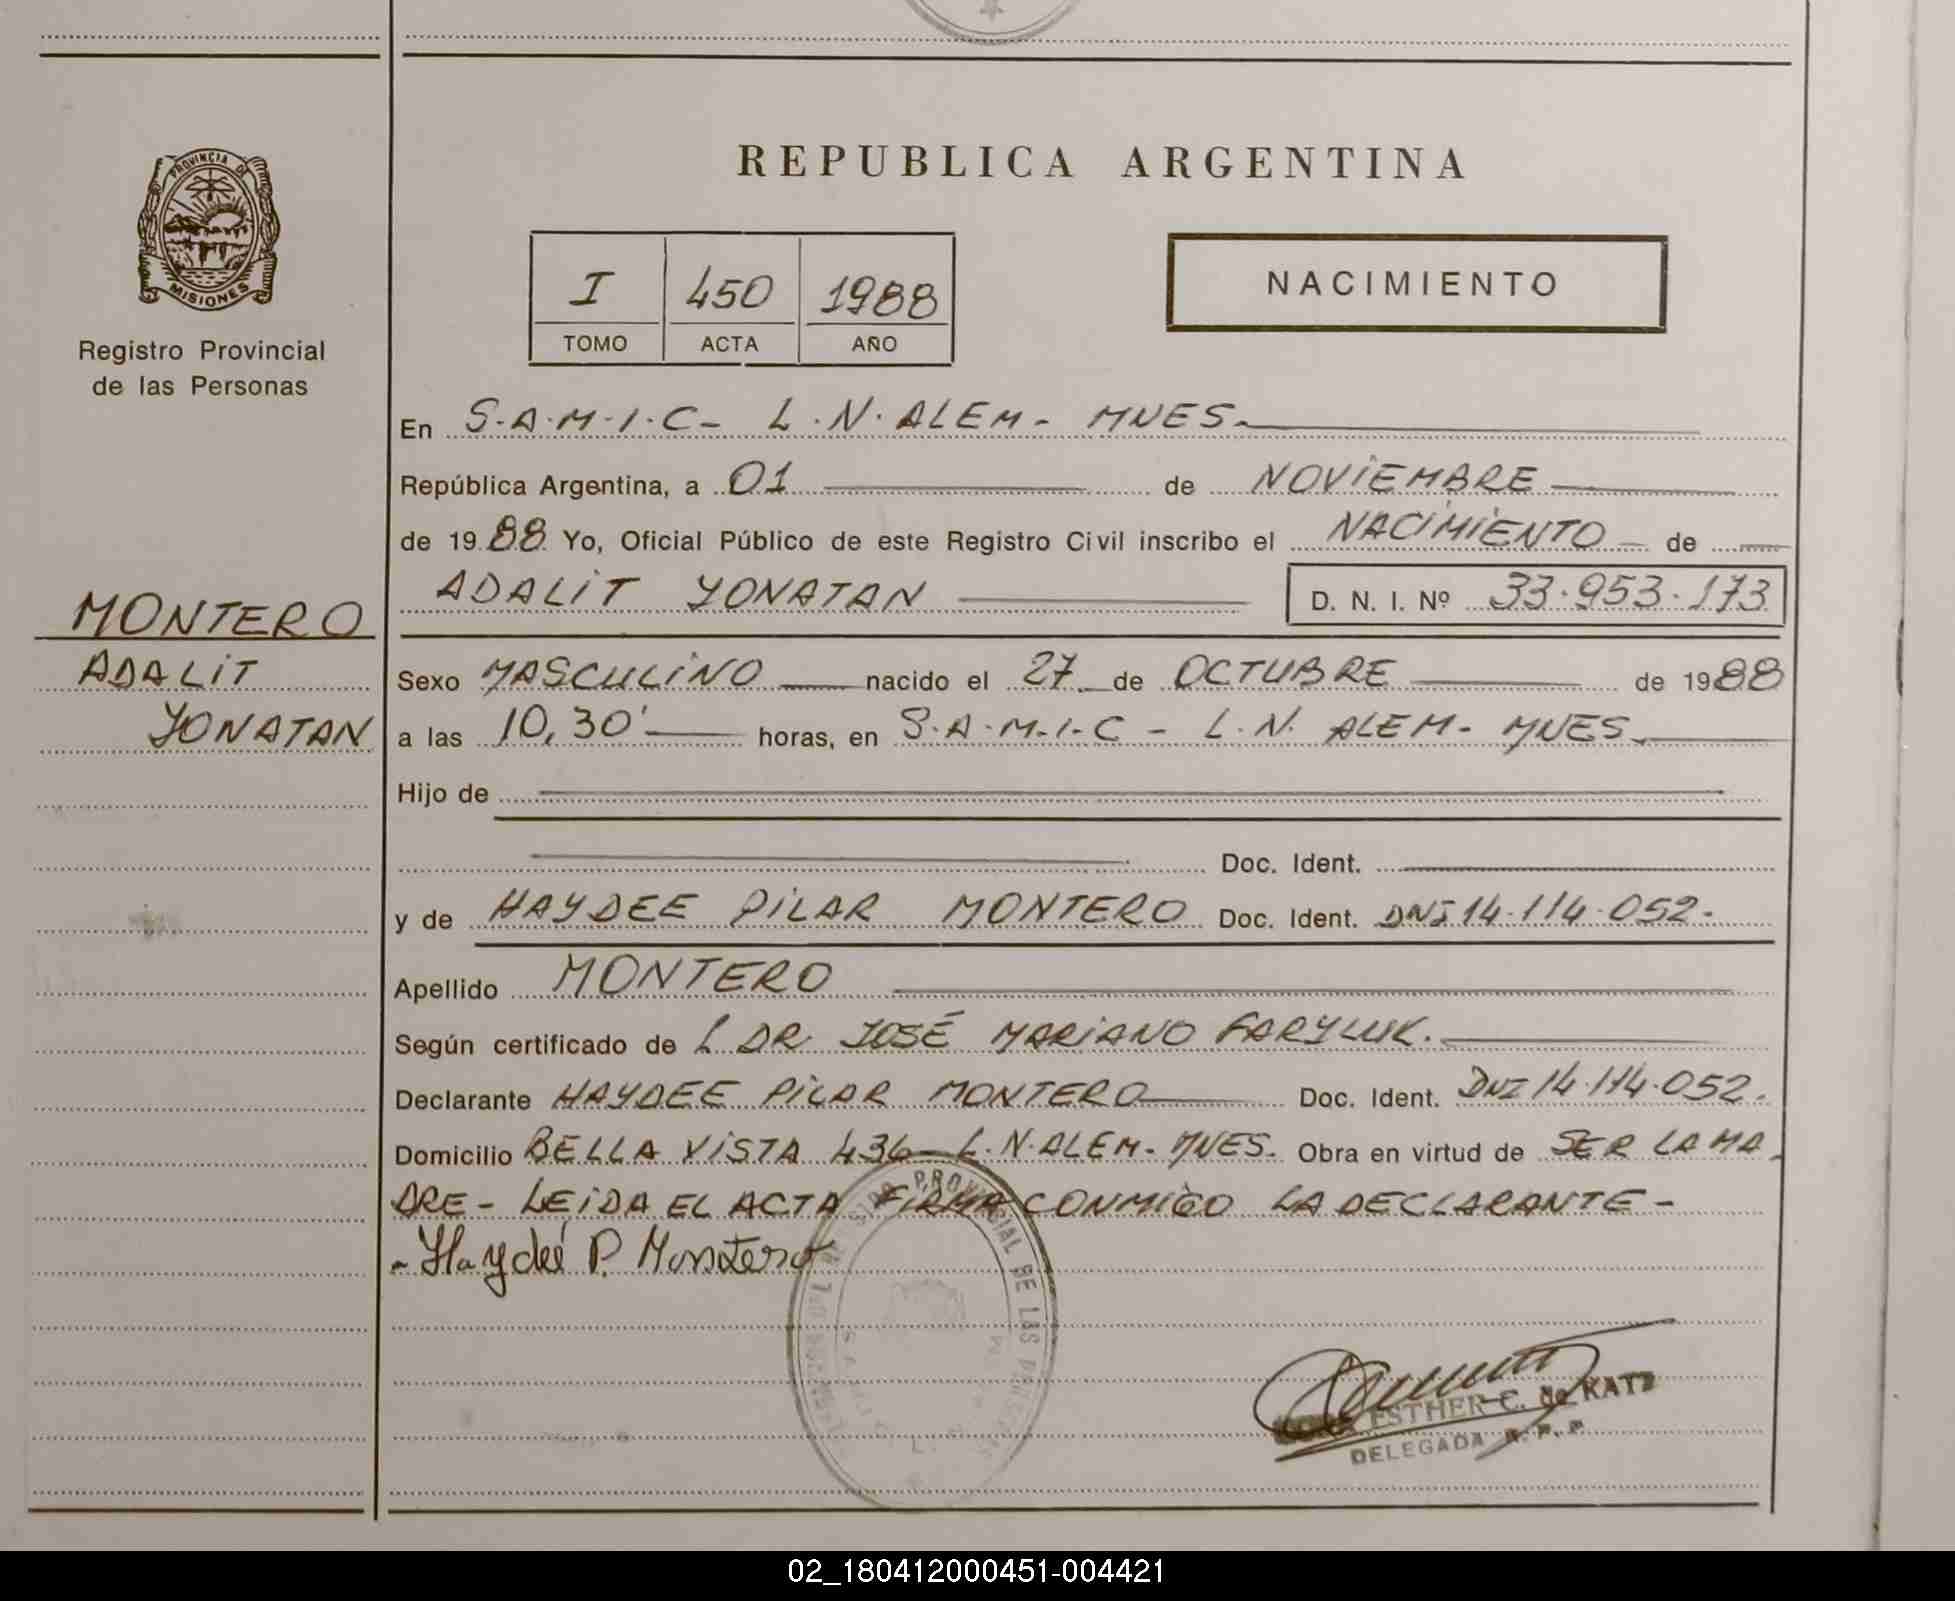 REPUBLICA ARGENTINA
PROVINCIA DE
MISIONES
Registro Provincial
de las Personas
I 450 1988
TOMO ACTA AÑO
NACIMIENTO
En S.A.M.I.C- L.N.ALEM- MNES.
República Argentina, a 01 de NOVIEMBRE
de 1988 Yo, Oficial Público de este Registro Civil inscribo el NACIMIENTO de
ADALIT YONATAN D. N. I. Nº 33.953.173
MONTERO
ADALIT
YONATAN
Sexo MASCULINO nacido el 27 de OCTUBRE de 1988
a las 10,30' horas, en S.A.M.I.C - L.N. ALEM- MNES.
Hijo de
Doc. Ident.
y de HAYDEE PILAR MONTERO Doc. Ident. DNI 14.114.052.
Apellido MONTERO
Según certificado de L DR. JOSÉ MARIANO FARYLUK.
Declarante HAYDEE PILAR MONTERO Doc. Ident. DNI 14.114.052.
Domicilio BELLA VISTA 436- L.N.ALEM- MNES. Obra en virtud de SER LA MA-
DRE- LEIDA EL ACTA FIRMA CONMIGO LA DECLARANTE-
- Haydeé P. Montero
PROVINCIAL DE LAS
ESTHER C. de KATZ
DELEGADA R. P. P.
02_180412000451-004421